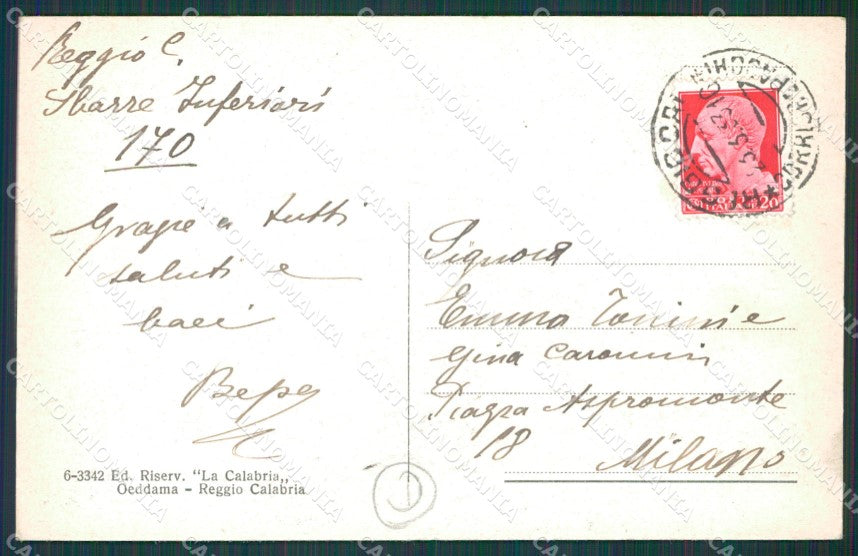 Reggio C.
Sbarre Inferiori
170
Grazie a tutti
saluti e
baci
Bepe
6-3342 Ed. Riserv. "La Calabria,,
Oeddama - Reggio Calabria
1
Signora
Emma Tonini e
Gina Caronnini
Piazza Aspromonte
18
Milano
REGGIO CAL
CORRISP PACCHI
20
CARTOLINOMANIA